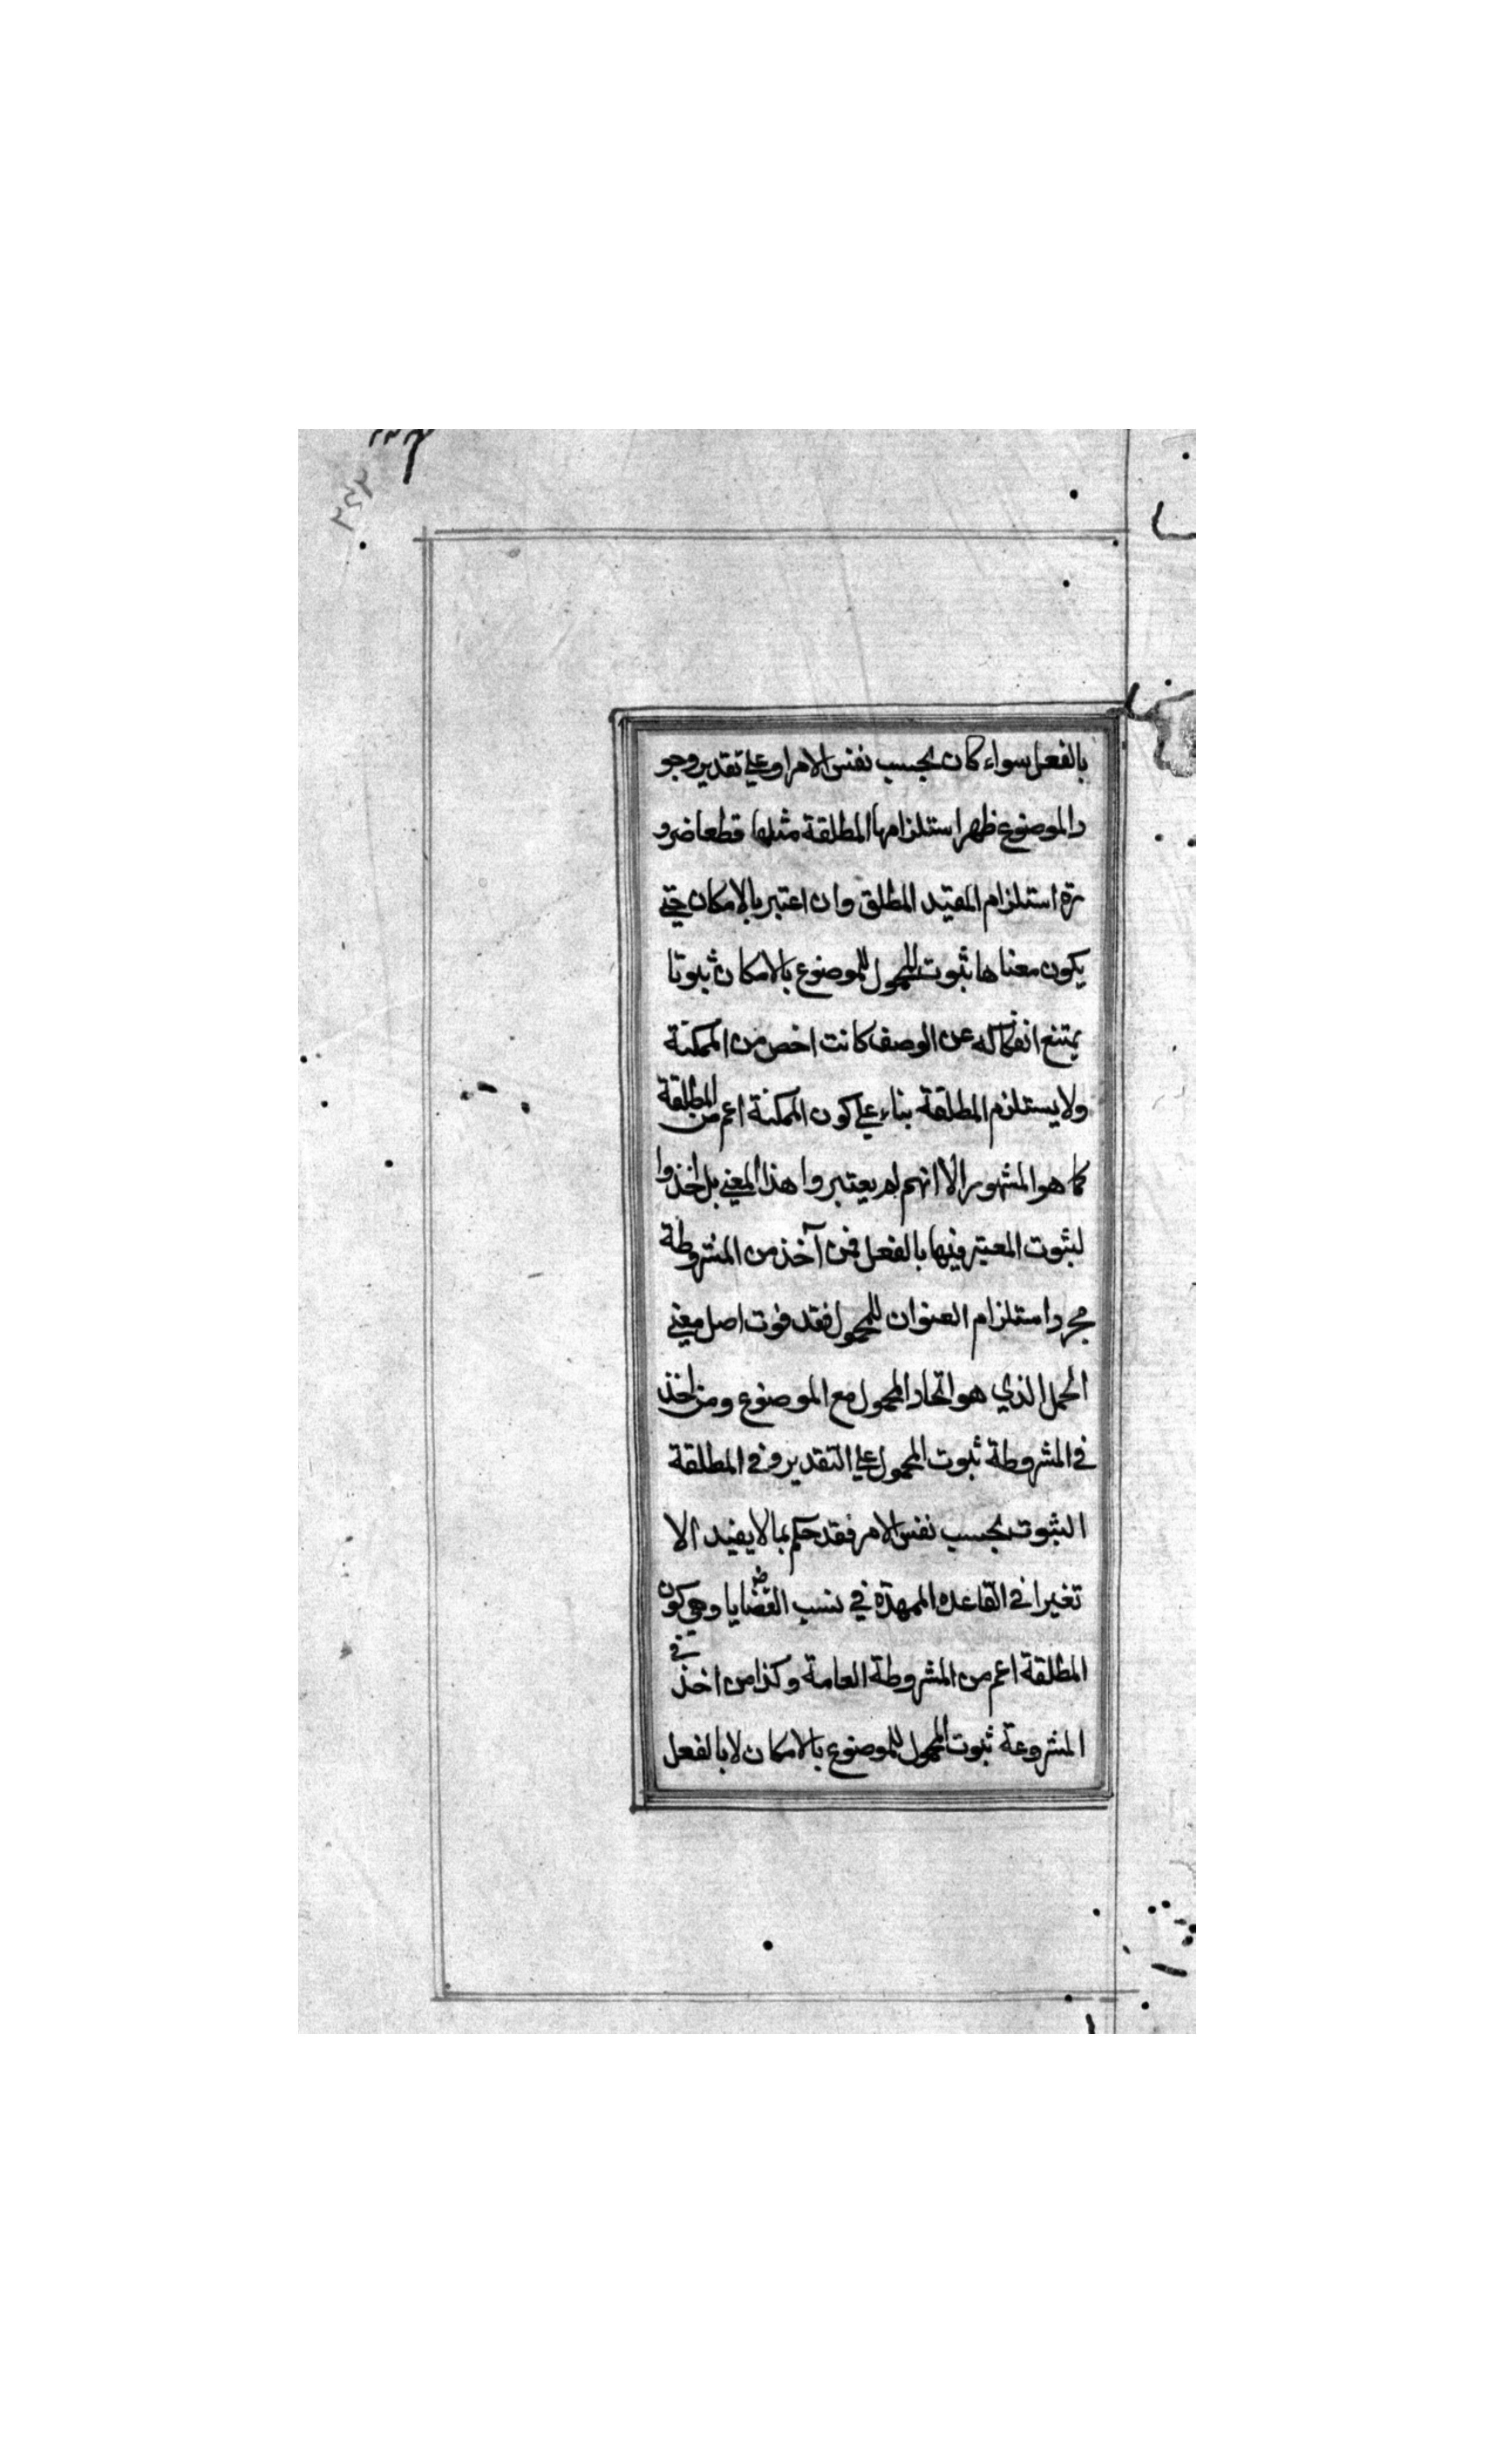 بالفعل سواء كان بحسب نفس الامر او علي تقدير وجو
د الموضوع ظهر استلزامها المطلقة مثلها قطعا ضرو
رة استلزام المقيد المطلق وان اعتبر بالامكان حتي
يكون معناها ثبوت المحمول للموضوع بالامكان ثبوتا
يمتنع انفكاكه عن الوصف كانت اخص من الممكنة
ولا يستلزم المطلقة بناء علي كون الممكنة اعم من المطلقة
كما هو المشهور الا انهم لم يعتبروا هذا المعني بل اخذوا
لبثوت المعتبر فيها بالفعل فمن آخذ من المشروطة
مجرد استلزام العنوان للمحمول فقد فوت اصل معني
الحمل الذي هو اتحاد المحمول مع الموضوع ومن اخذ
في المشروطة ثبوت المحمول علي التقدير وفي المطلقة
الثبوت بحسب نفس الامر فقد حكم بما لا يفيد الا
تغيرا في القاعده الممهدة في نسب القضايا وهي كون
المطلقة اعم من المشروطة العامة وكذا من اخذ في
المشروعة ثبوت المحمول للموضوع بالامكان لا بالفعل